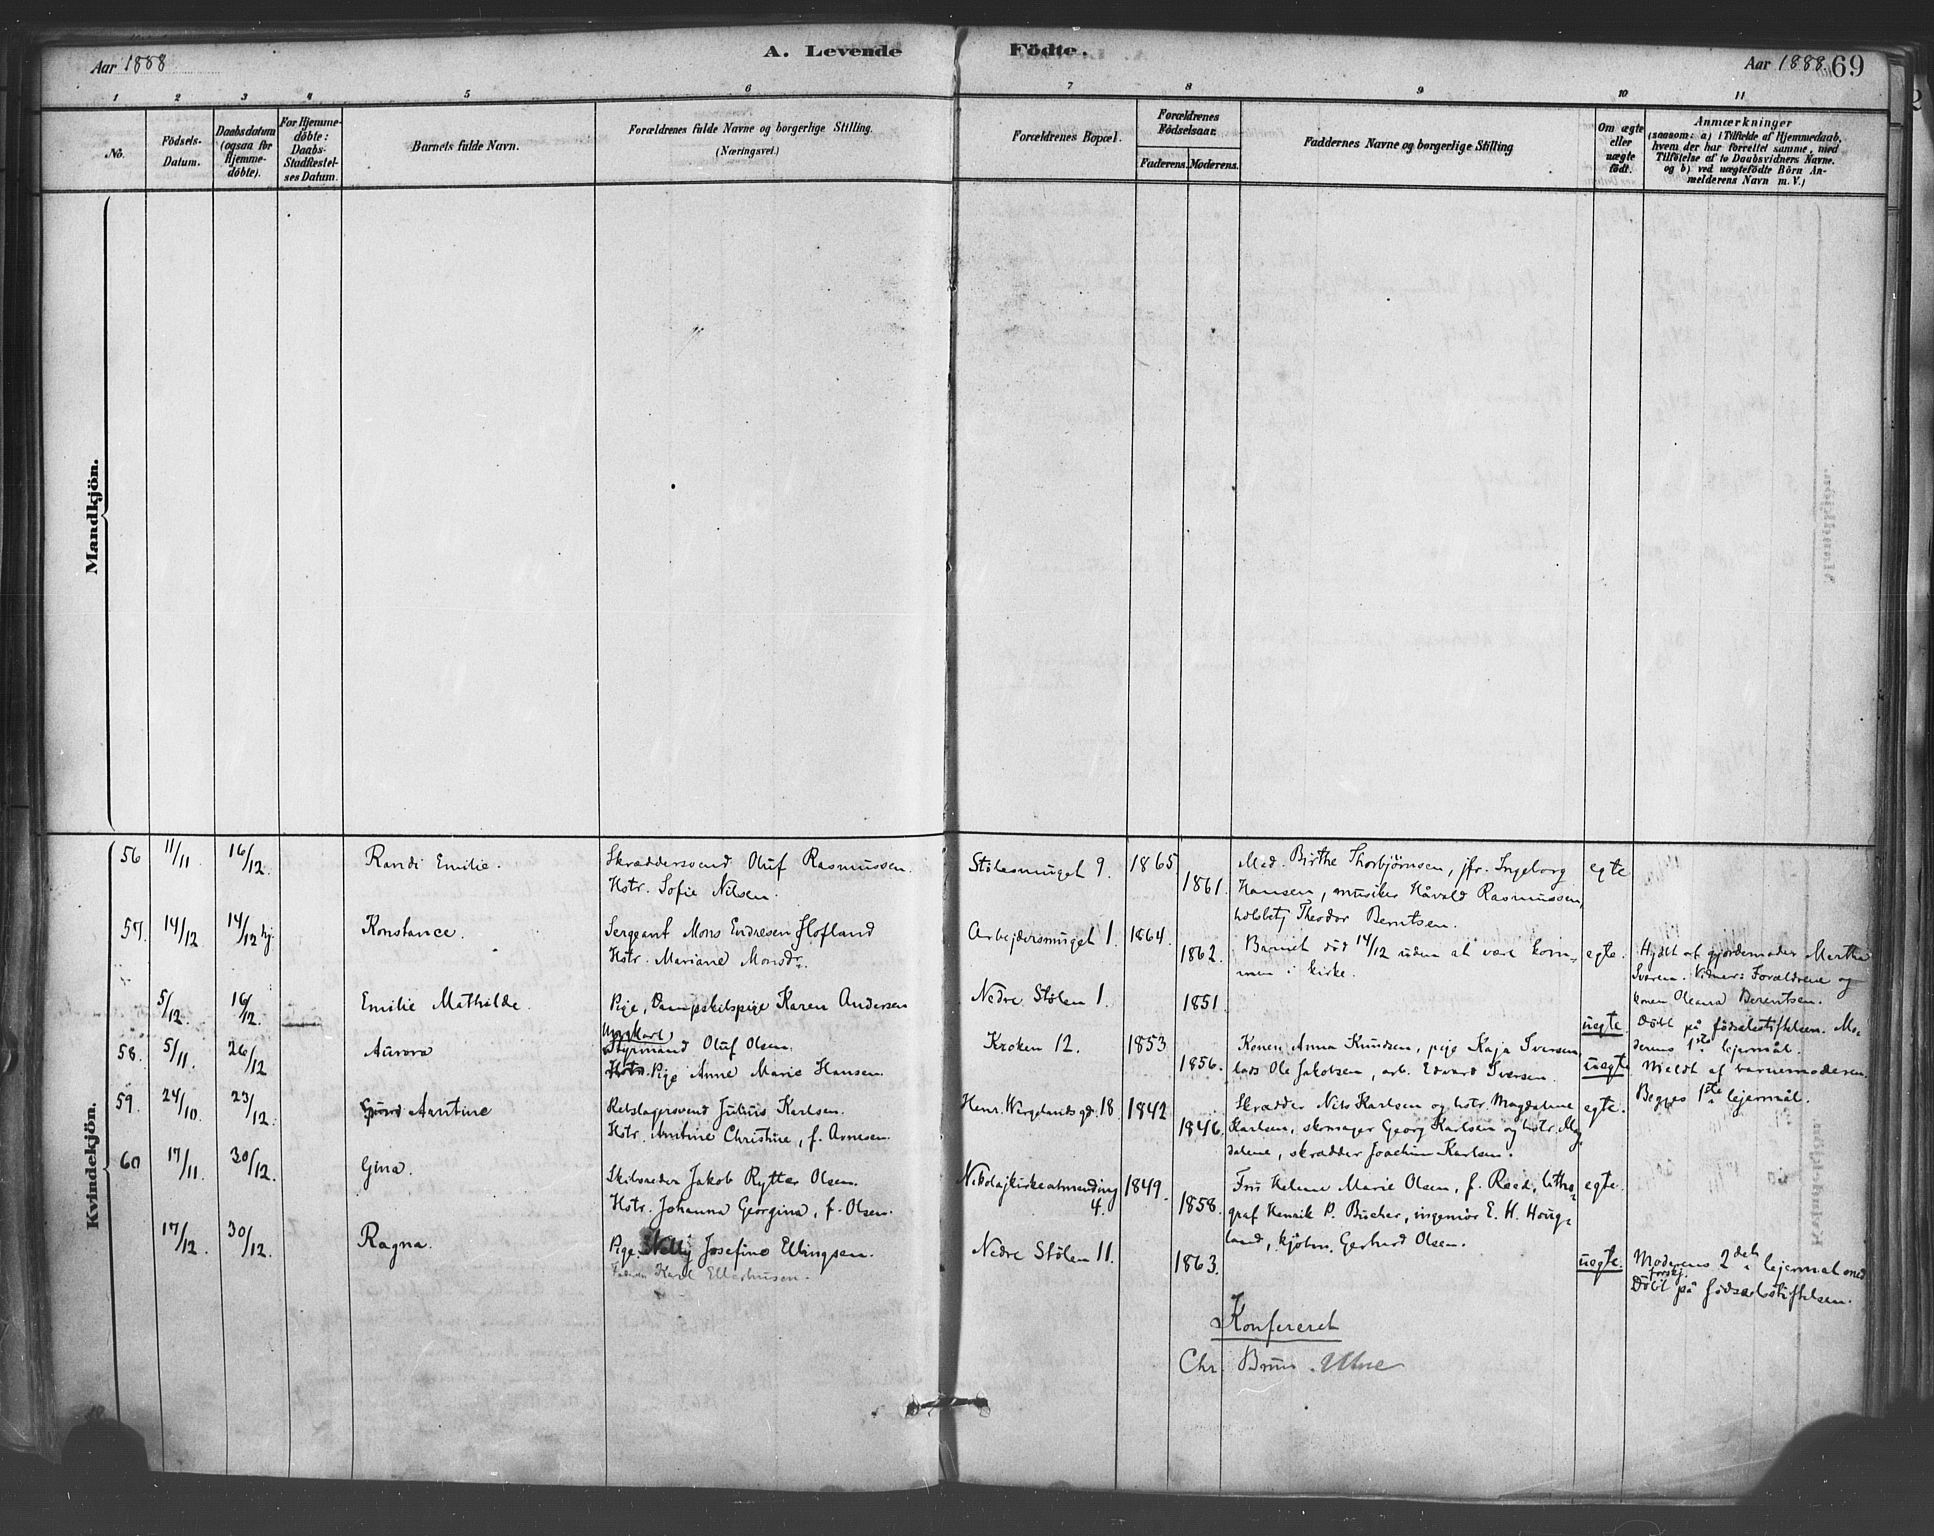 Aar 1888
A. Levende Födte.
Aar 1888. 69
1 2 3 4 5 6 7 8 9 10 11
No.
Födsels-
Datum.
Daabsdatum
(ogsaa for
Hjemme-
döbte).
For Hjemme-
döbte:
Daabs-
Stadfæstel-
ses Datum.
Barnets fulde Navn.
Forældrenes fulde Navne og borgerlige Stilling.
(Næringsvei.)
Forældrenes Bopæl.
Forældrenes
Födselsaar.
Faderens. Moderens.
Faddernes Navne og borgerlige Stilling
Om ægte
eller
uægte
födt.
Anmærkninger
(saasom: a) i Tilfælde af Hjemmedaab,
hvem der har forrettet samme, med
Tilföielse af to Daabsvidners Navne.
og b) ved uægtefödte Börn An-
melderens Navn m. V.)
Mandkjön.
Kvindekjön.
56 11/11. 16/12. Randi Emilie. Skræddersvend Oluf Rasmussen.
Hstr. Sofie Nilsen.
Stølesmuget 9. 1865 1861.
Mad. Birthe Thorbjørnsen, jfr. Ingeborg
Hansen, musiker Håvald Rasmussen,
Theodor Berntsen.
egte
57. 14/12 14/12 hj. Konstance. Sergeant Mons Endresen Hofland
Hstr. Mariane Monsdr.
Arbejdersmuget 1. 1864. 1862.
Barnet død 14/12 uden at være kom-
men i kirke.
egte.
Hjdbt af gjordemoder Martha
Vidner: Forældrene og
konen Oleana Berentsen.
5/12. 16/12. Emilie Mathilde. Pige, Dampskibspige Karen Andersen
Nedre Stølen 1. 1851.
uegte.
Døbt på fødselsstiftelsen. Mo-
derens 1ste lejermål.
58. 5/11. 26/12 Aurora Ungkarl
Styrmand Oluf Olsen.
Hstr. Pige Anne Marie Hansen.
Kroken 12. 1853 1856.
Konen Anna Knudsen, pige Kaja Iversen,
Ole Jakobsen, arb. Edvard Iversen.
uegte
Meldt af barnemoderen.
Begges 1ste lejermål.
59. 24/10. 23/12. Aantine Rebslagersvend Julius Karlsen.
Hstr. Antine Christine, f. Arnesen.
Henr. Wergelands gd. 18 1842 1846.
Skrædder Nils Karlsen og hstr. Magdalene
Karlsen, skomager Georg Karlsen og hstr. Mag
dalene, skrædder Joachim Karlsen.
egte.
60 17/11. 30/12. Gina. Skibsreder Jakob Rytter Olsen.
Hstr. Johanna Georgina, f. Olsen.
Nikolajkirkealmending
4.
1849. 1858.
Fru Helene Marie Olsen, f. Reed, litho-
graf Henrik P. Bucher, ingeniør E. H. Houg-
land, kjøbm. Gerhard Olsen.
egte.
17/12. 30/12. Ragna. Pige Nelly Josefine Ellingsen.
Karl Ellerhusen.
Nedre Stølen 11. 1863.
uegte.
Moderens 2det lejermål med
forskj.
Døbt på fødselsstiftelsen.
Konfereret
Chr. Bruun